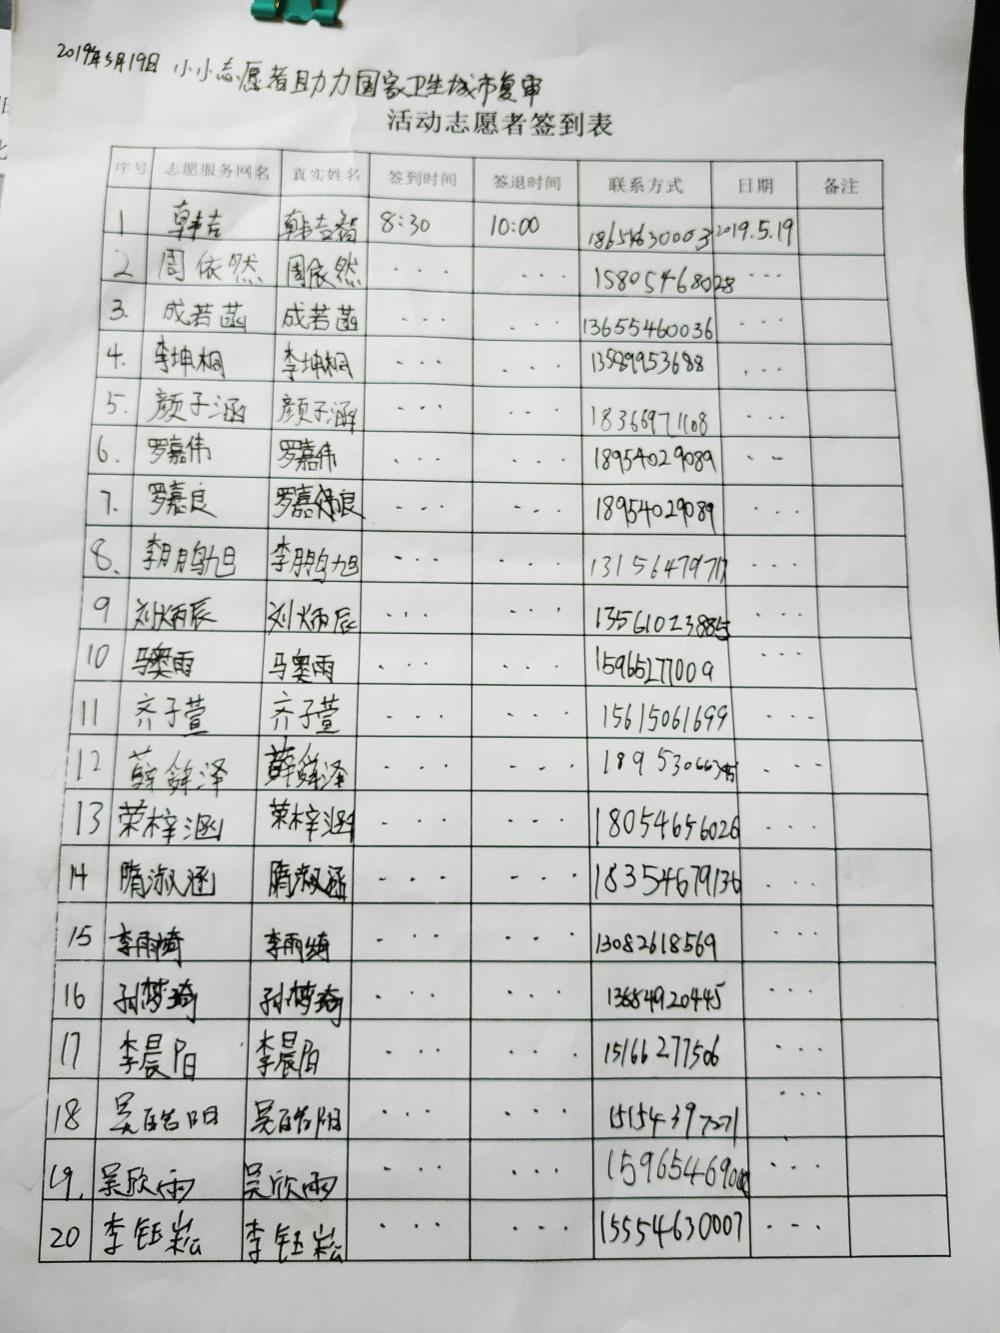 2019年5月19日 小小志愿者助力国家卫生城市复审
活动志愿者签到表
序号 志愿服务网名 真实姓名 签到时间 签退时间 联系方式 日期 备注
1 韩吉 韩吉智 8:30 10:00 2019.5.19
2 周依然 周依然 ··· ··· 15805468028 ···
3. 成若菡 成若菡 ··· ··· 13655460036 ···
4. 李坤桐 李坤桐 ··· ··· 13589953688 ···
5. 颜子涵 颜子涵 ··· ··· 18366971108 ···
6. 罗嘉伟 罗嘉伟 ··· ··· 18954029089 ··
7. 罗嘉良 罗嘉良 ··· ··· 18954029089 ···
8、 李鹏旭 李鹏旭 ··· ··· 13156479717 ···
9 刘炳辰 刘炳辰 ··· ··· 13561023885 ···
10 马奥雨 马奥雨 ··· ··· 15965277009 ···
11 齐子萱 齐子萱 ··· ··· 15615061699 ···
12 ··· ··· ···
13 荣梓涵 荣梓涵 ··· ··· 18054656026 ···
14 隋淑涵 隋淑涵 ··· ··· 18354679136 ···
15 李雨绮 李雨绮 ··· ··· 13082618569 ···
16 孙梦琦 孙梦琦 ··· ··· 13684920445 ···
17 李晨阳 李晨阳 ··· ··· 15166277506 ···
18 吴皓阳 吴皓阳 ··· ··· 15154397271 ···
19. 吴欣雨 吴欣雨 ··· ··· ···
20 李钰崧 李钰崧 ··· ··· 15554630007 ···